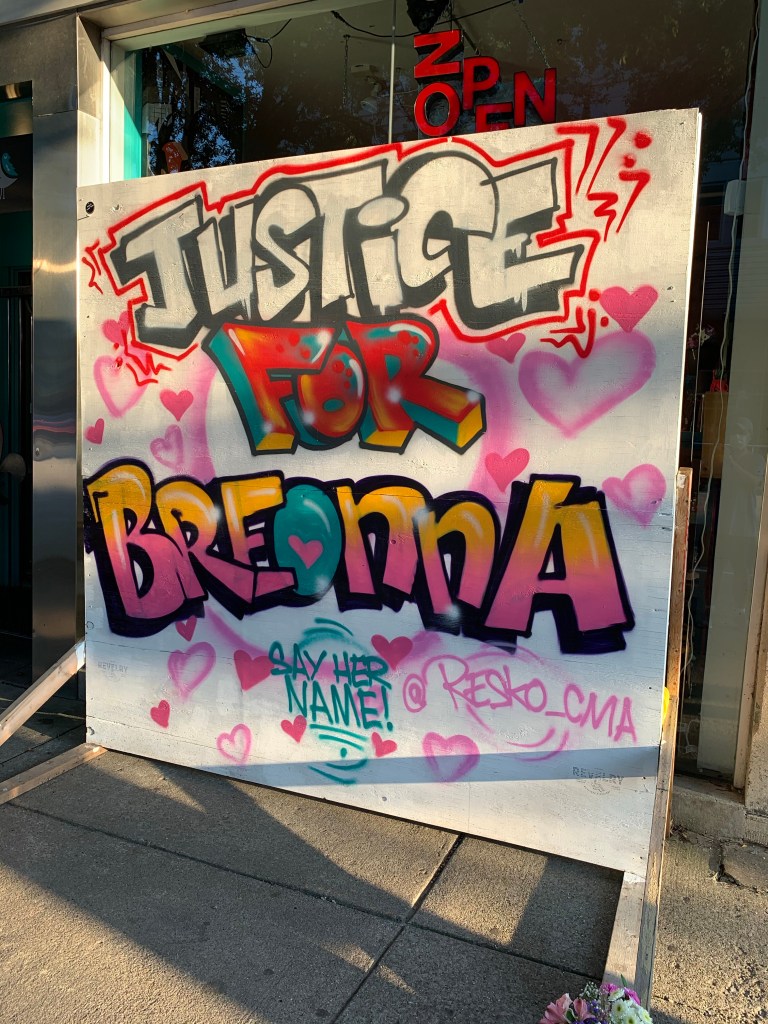 OPEN
JUSTiCE
FOR
BREONNA
SAY HER
NAME!
@RESKO_CMA
REVELRY
REVELRY